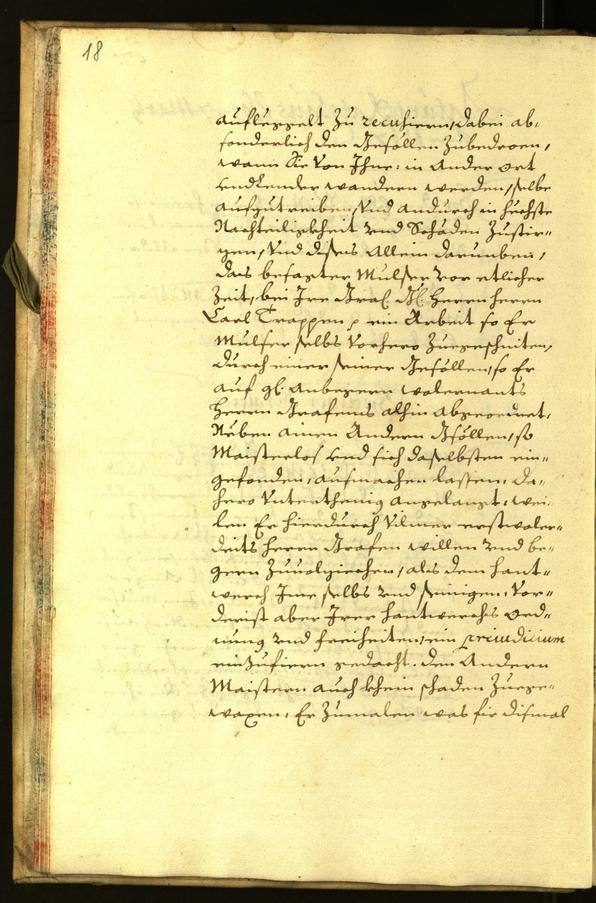 18
aufleggelt zu recusiern, dabei ab-
sonderlich den Gesöllen zubedroen,
wann Sie von Ihme in Ander ort
und Lender wandern werden, selbe
aufzutreiben, und andurch in höchste
Nachteiligkheit und Schaden zustir-
zen, und dises allein darumben,
das besagter Mulser vor etlicher
Zeit, bei Ire Graf. Gl. Herrn Herrn
Carl Trappen p ein Arbeit so Er
Mulser selbs vorhero zuegeschniten,
durch einer seiner Gesöllen, so Er
auf gl. Anbegern wolernants
Herrn Grafens alhin abgeordnet,
Neben ainen Andern Gsöllen, so
Maisterlos und sich daselbsten ein-
gefonden, aufmachen lassen. Da-
hero unterthenig angelangt, wei-
len Er hierdurch vilmer erstwoler-
deits Herrn Grafen willen und be-
gern zuvolziechen, als dem hant-
werch Ime selbs und seinigen, vor-
derist aber Irer hantwerchs ord-
nung und freiheiten, ein preiudicium
einzufiern gedacht. den Andern
Maistern auch khein schaden zuege-
waxen, Er zumalen was fir dismal